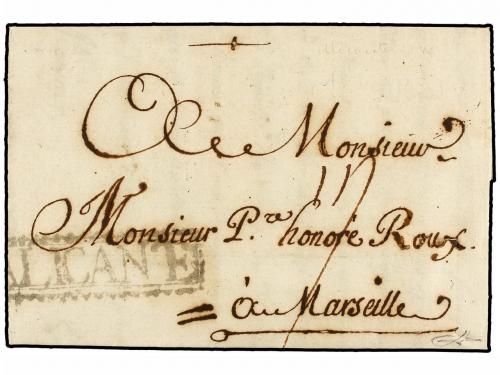 A Monsieur
Monsieur P.re honoré Roux
ALICANTE
à Marseille